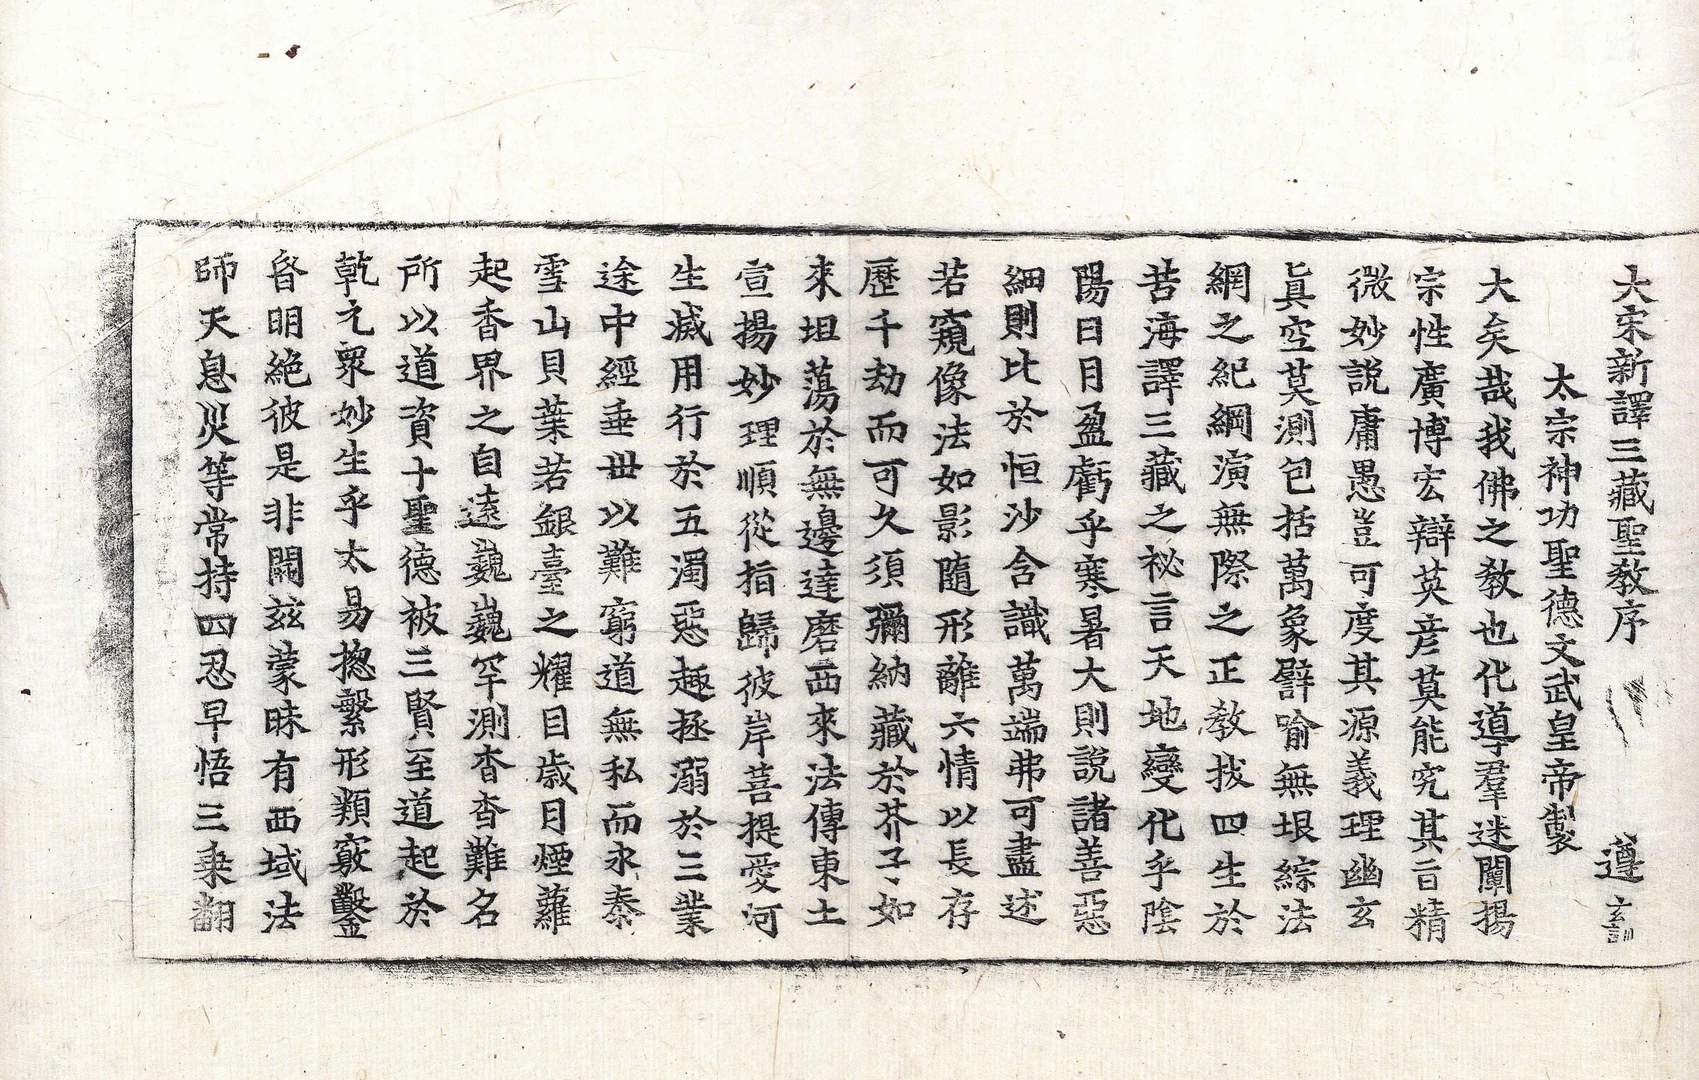 大宋新譯三藏聖敎序 遵
太宗神功聖德文武皇帝製
大矣哉我佛之敎也化導羣迷闡揚
宗性廣博宏辯英彦莫能究其旨精
微妙說庸愚豈可度其源義理幽玄
眞空莫測包括萬象譬喻無垠綜法
網之紀綱演無際之正敎拔四生於
苦海譯三藏之祕言天地變化乎陰
陽日月盈虧乎寒暑大則說諸善惡
細則比於恒沙含識萬端弗可盡述
若窺像法如影隨形離六情以長存
歷千劫而可久須彌納藏於芥子如
來坦蕩於無邊達磨西來法傳東土
宣揚妙理順從指歸彼岸菩提愛河
生滅用行於五濁惡趣拯溺於三業
途中經垂世以難窮道無私而永泰
雪山貝葉若銀臺之耀目歲月煙蘿
起香界之自遠巍巍罕測杳杳難名
所以道資十聖德被三賢至道起於
乾元衆妙生乎太易摠繫形類竅鑿
昏明絶彼是非開玆蒙昧有西域法
師天息災等常持四忍早悟三乘翻